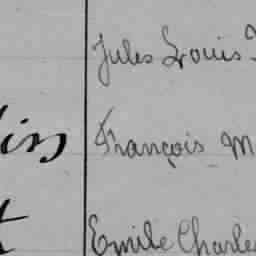 Jules Louis
François M
Emile Charles